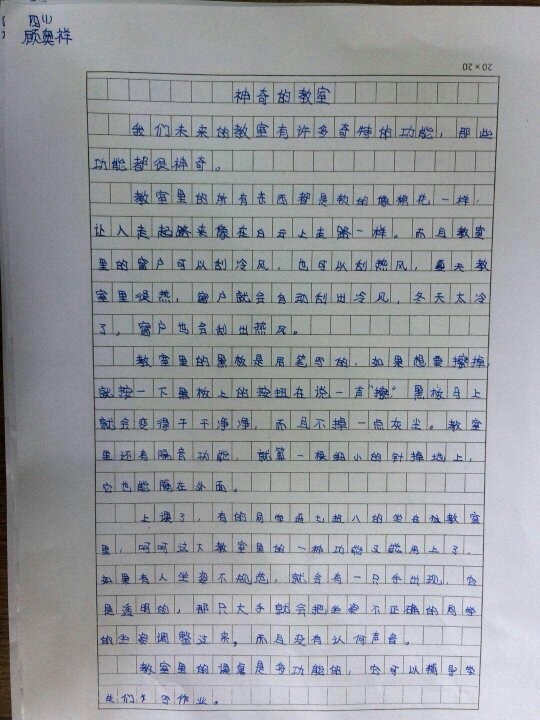 四(1)
顾奥祥
20×20
神奇的教室
我们未来的教室有许多奇特的功能，那些
功能都很神奇。
教室里的所有东西都是软的像棉花一样，
让人走起路来像在白云上走路一样。而且教室
里的窗户可以刮冷风，也可以刮热风，夏天教
室里很热，窗户就会自动刮出冷风，冬天太冷
了，窗户也会刮出热风。
教室里的黑板是用笔写的，如果想要擦擦，
就按一下黑板上的按钮在说一声“擦”，黑板马上
就会变得干干净净，而且不掉一点灰尘。教室
里还有隔音功能，就算一根细小的针掉地上，
它也能隔在外面。
上课了，有的同学歪七扭八的坐在教室
里，呵呵这下教室里的一种功能又能用上了，
如果有人坐姿不规范，就会有一只手出现，它
是透明的，那只大手就会把坐姿不正确的同学
的坐姿调整过来，而且没有任何声音。
教室里的课桌是多功能的，它可以辅导学
我们写作业。